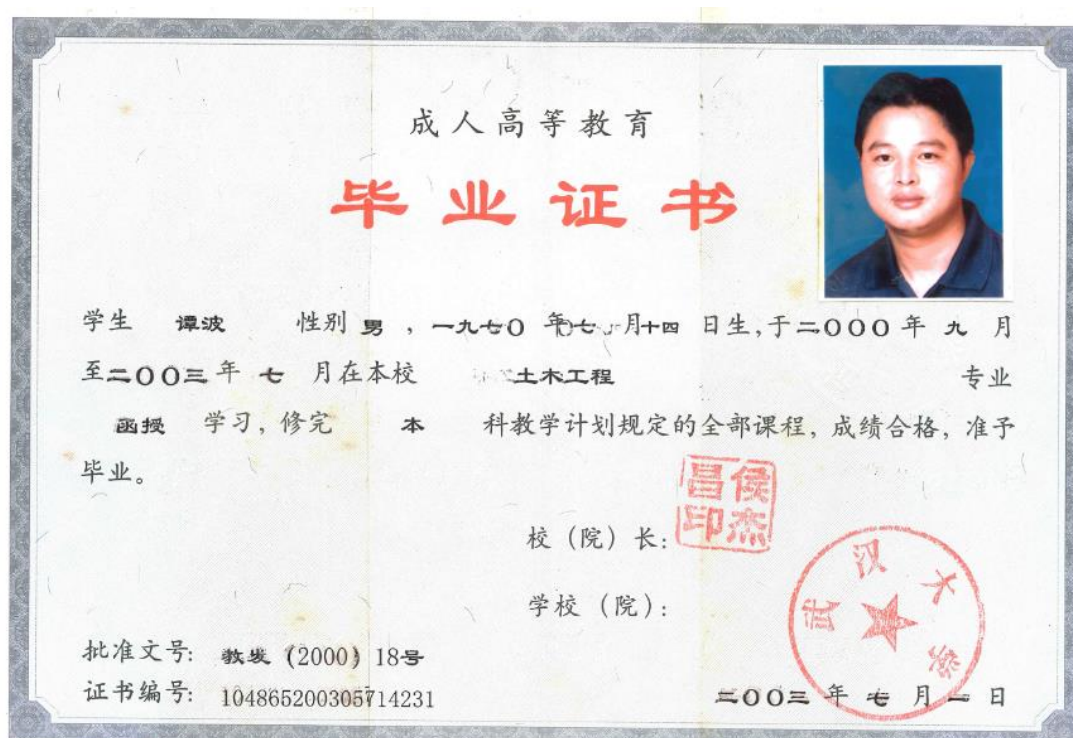 成人高等教育
毕业证书
学生 谭波 性别 男，一九七〇年七月十四日生，于二〇〇〇年九月
至二〇〇三年七月在本校 土木工程 专业
函授 学习，修完 本 科教学计划规定的全部课程，成绩合格，准予
毕业。
侯杰昌印
校（院）长：
武汉大学
学校（院）：
批准文号：教发（2000）18号
证书编号：104865200305714231
二〇〇三年七月一日